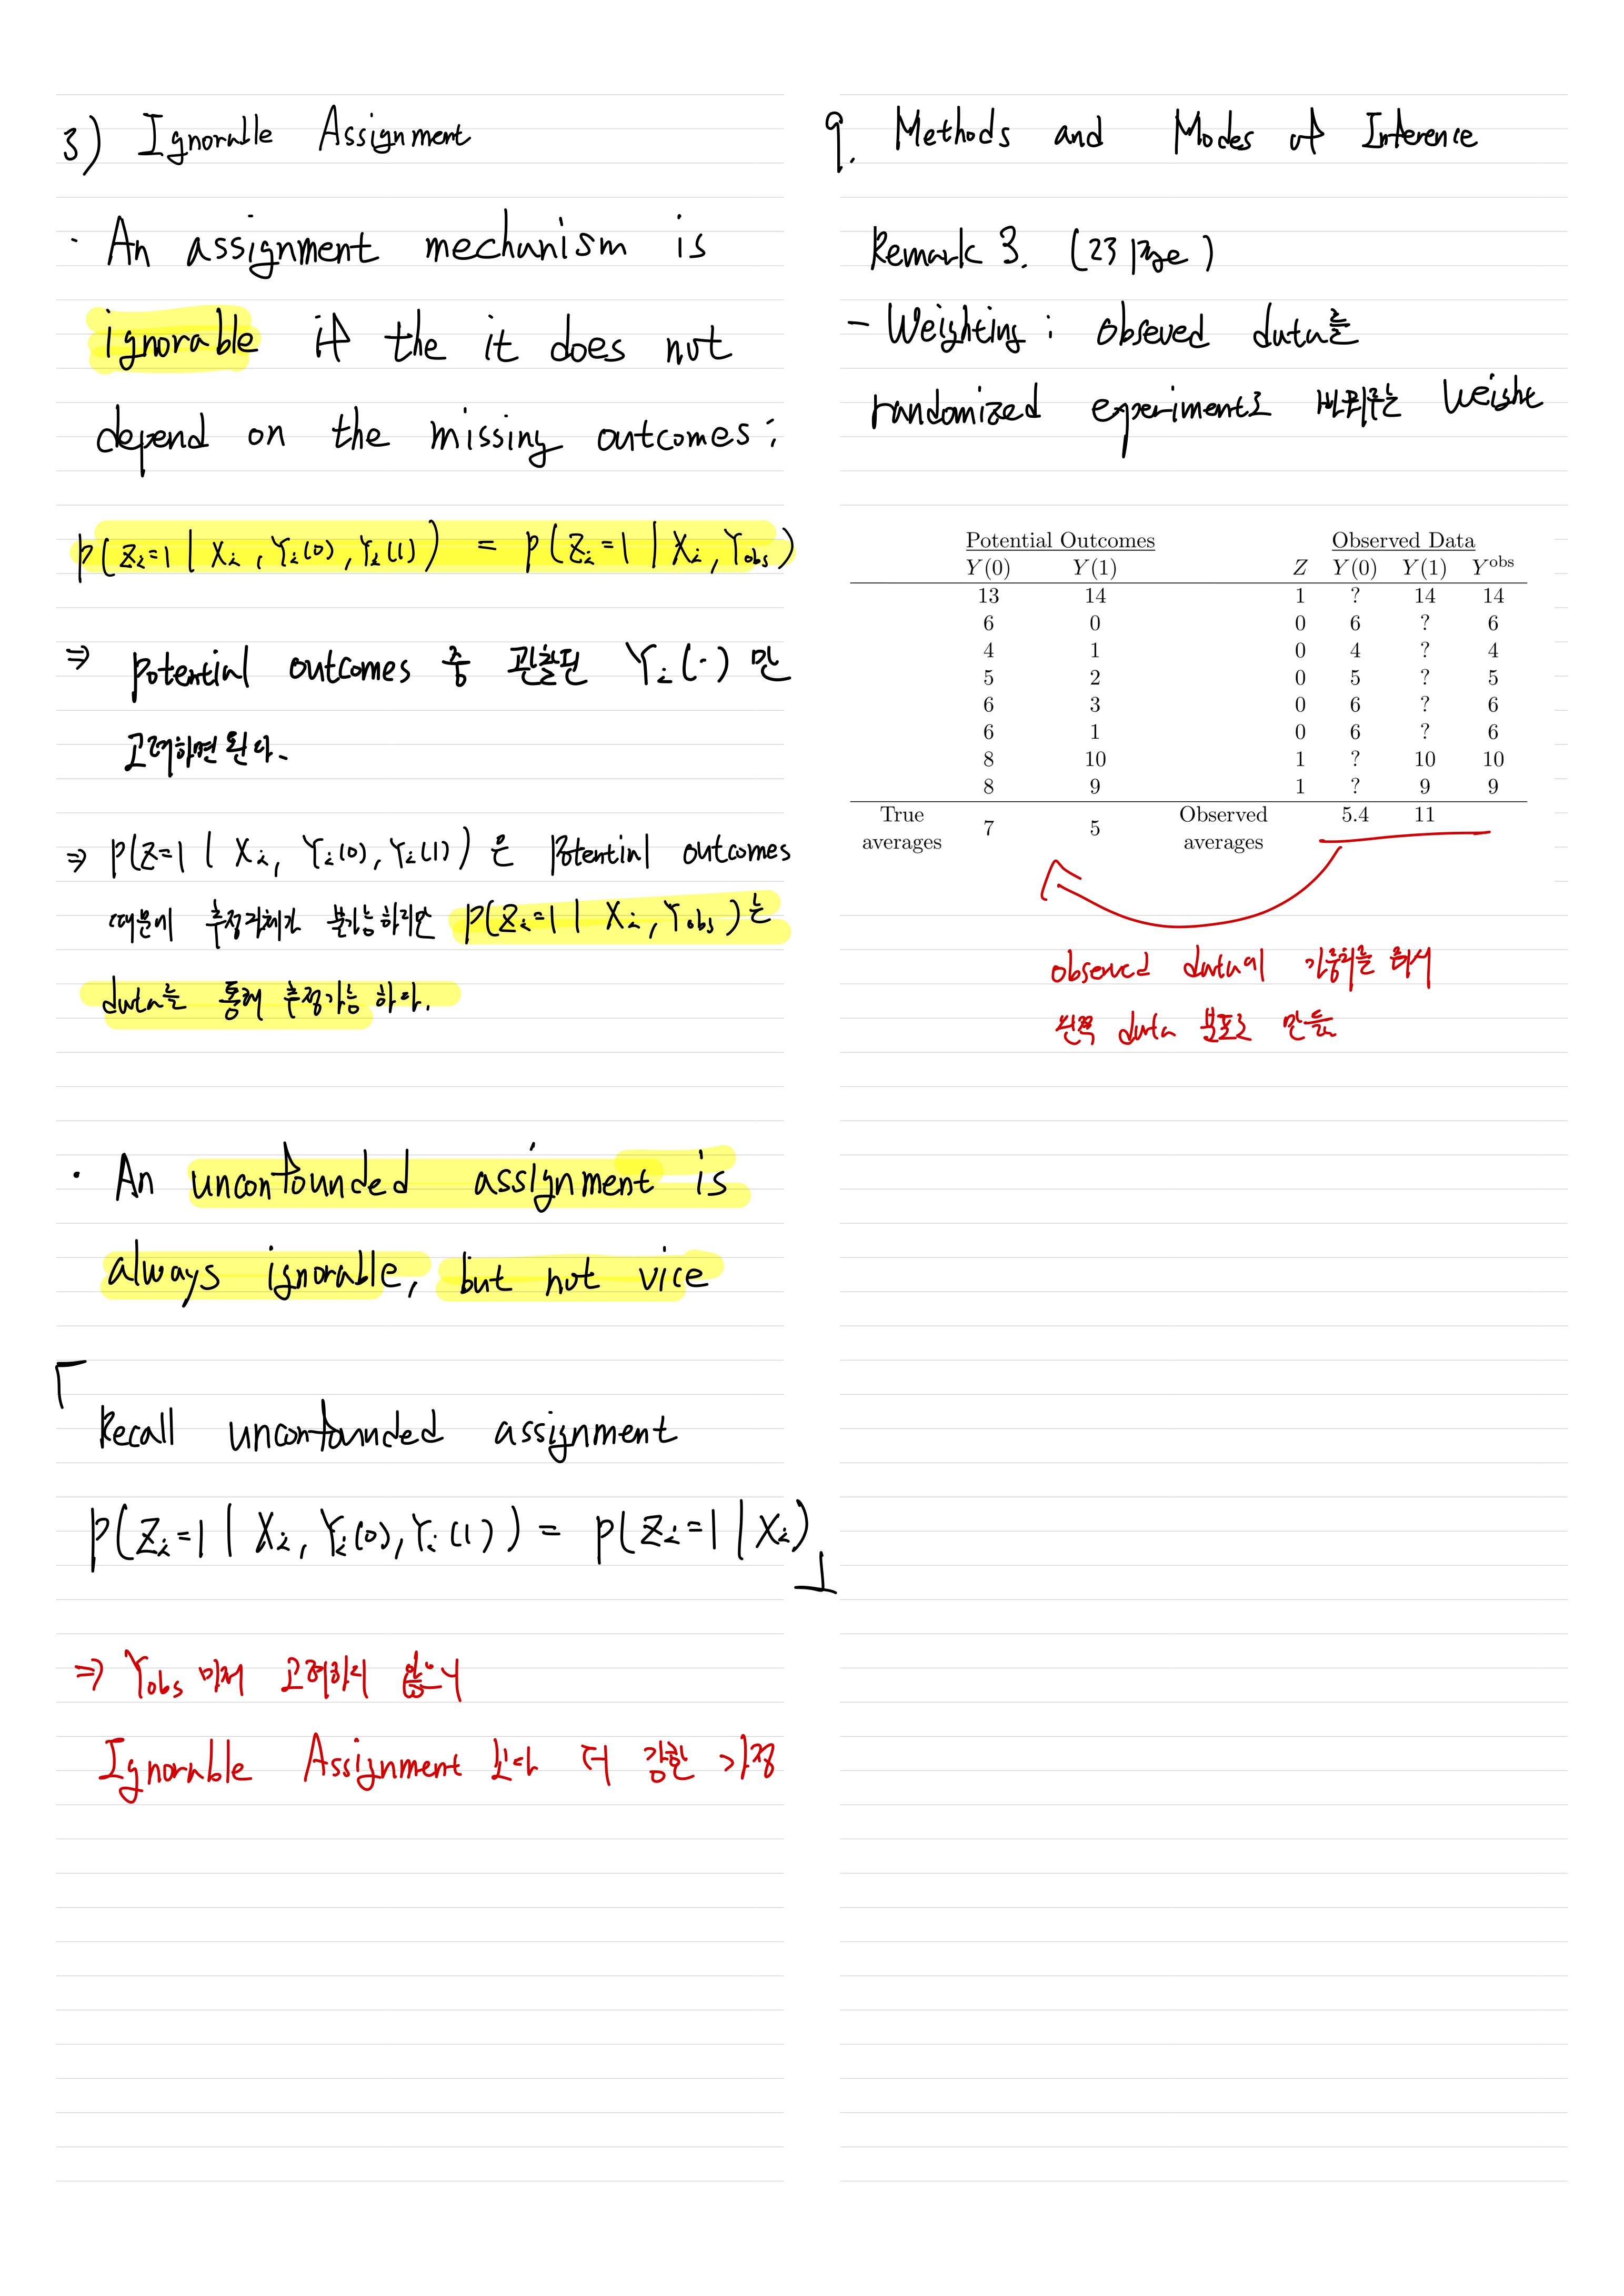 3) Ignorable Assignment
· An assignment mechanism is
ignorable if the it does not
depend on the missing outcomes :
P(Zi=1 | Xi, Yi(0), Yi(1)) = P(Zi=1 | Xi, Yobs)
⇒ potential outcomes 중 관찰된 Yi(·) 만
고려하면 된다.
⇒ P(Z=1 | Xi, Yi(0), Yi(1)) 은 Potential outcomes
때문에 추정자체가 불가능하지만 P(Zi=1 | Xi, Yobs)는
data를 통해 추정가능 하다.
· An unconfounded assignment is
always ignorable, but not vice
「
Recall unconfounded assignment
P(Zi=1 | Xi, Yi(0), Yi(1)) = P(Zi=1 | Xi)
」
⇒ Yobs 마저 고려하지 않으니
Ignorable Assignment 보다 더 강한 가정
9. Methods and Modes of Inference
Remark 3. (23 page)
- Weighting : obseved data를
randomized experiment로 바꿔주는 weight
Potential Outcomes Observed Data
Y(0) Y(1) Z Y(0) Y(1) Yobs
13 14 1 ? 14 14
6 0 0 6 ? 6
4 1 0 4 ? 4
5 2 0 5 ? 5
6 3 0 6 ? 6
6 1 0 6 ? 6
8 10 1 ? 10 10
8 9 1 ? 9 9
True averages 7 5 Observed averages 5.4 11
observed data에 가중치를 줘서
왼쪽 data 분포로 만듦